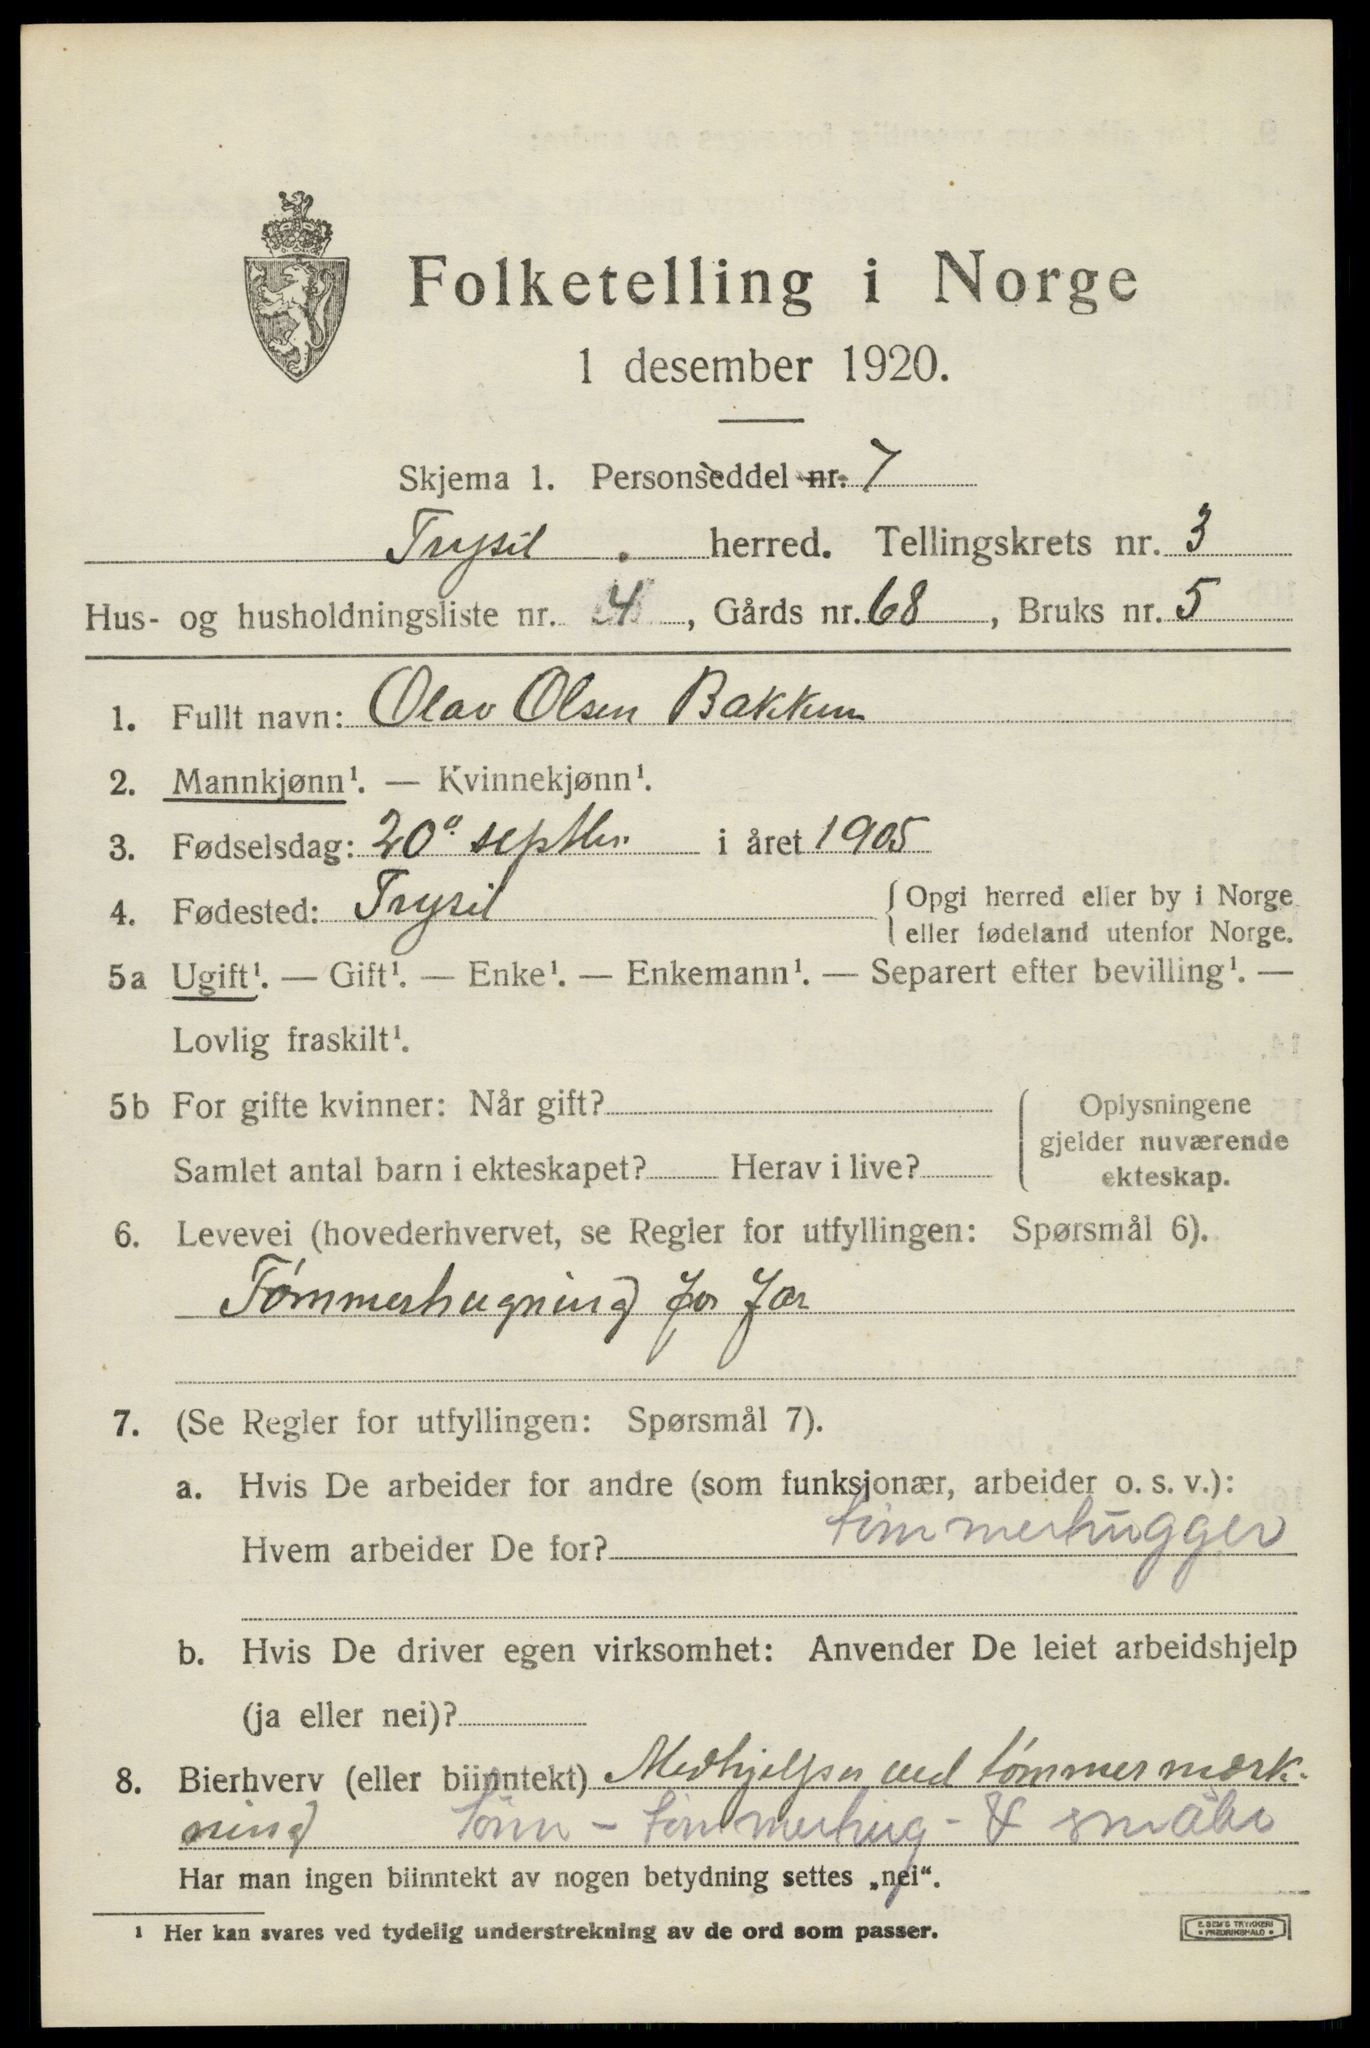 Folketelling i Norge
1 desember 1920.
Skjema 1. Personseddel nr. 7
Trysil herred. Tellingskrets nr. 3
Hus- og husholdningsliste nr. 4, Gårds nr. 68, Bruks nr. 5
1. Fullt navn: Olav Olsen Bakken
2. Mannkjønn¹. — Kvinnekjønn¹.
3. Fødselsdag: 20º septbr. i året 1905
4. Fødested: Trysil {Opgi herred eller by i Norge
eller fødeland utenfor Norge.
5a Ugift¹. — Gift¹. — Enke¹. — Enkemann¹. — Separert efter bevilling¹. —
Lovlig fraskilt¹.
5b For gifte kvinner: Når gift?
Samlet antal barn i ekteskapet? Herav i live?
{Oplysningene
gjelder nuværende
ekteskap.
6. Levevei (hovederhvervet, se Regler for utfyllingen: Spørsmål 6).
Tømmerhugning for far
7. (Se Regler for utfyllingen: Spørsmål 7).
a. Hvis De arbeider for andre (som funksjonær, arbeider o. s. v.):
Hvem arbeider De for? tømmerhugger
b. Hvis De driver egen virksomhet: Anvender De leiet arbeidshjelp
(ja eller nei)?
8. Bierhverv (eller biinntekt) Medhjelper ved tømmermerk-
ning tømmerhug- & småbr
Har man ingen biinntekt av nogen betydning settes „nei“.
¹ Her kan svares ved tydelig understrekning av de ord som passer.
E. SEM'S TRYKKERI
• FREDRIKSHALD •